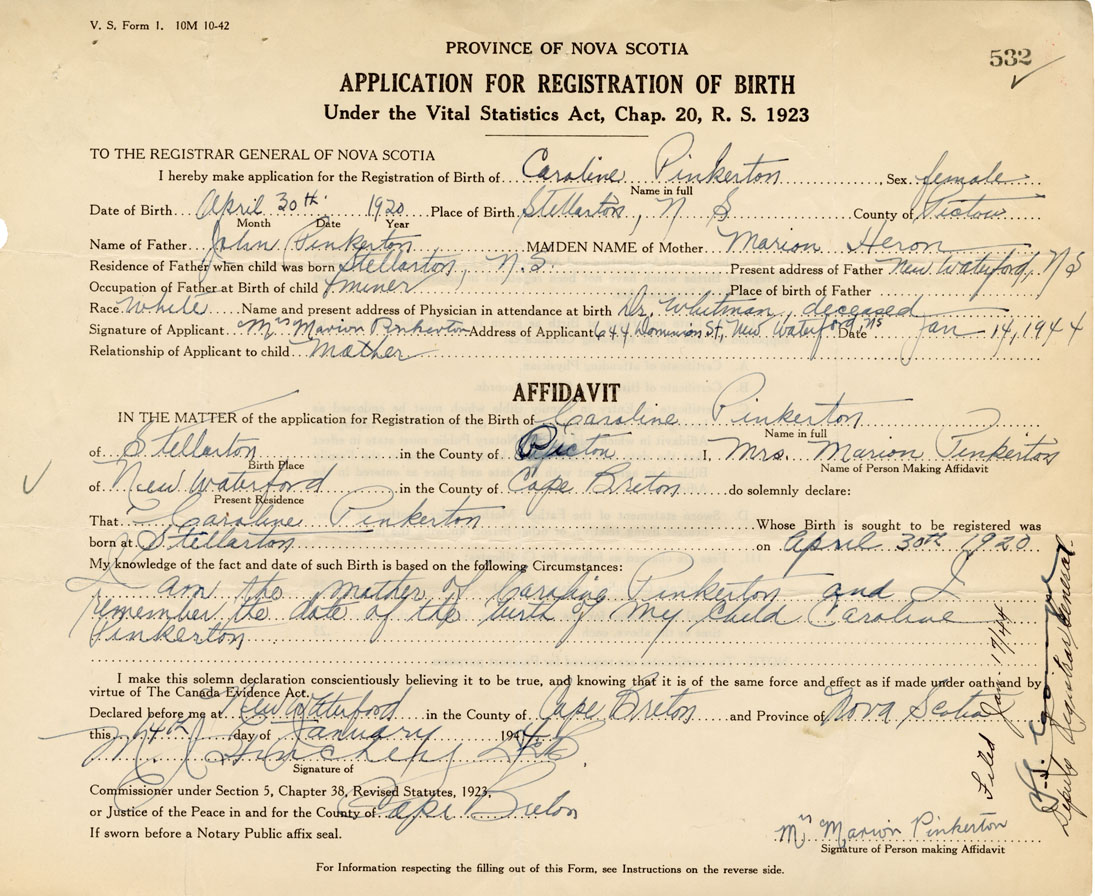 V. S. Form 1. 10M 10-42
PROVINCE OF NOVA SCOTIA
532
APPLICATION FOR REGISTRATION OF BIRTH
Under the Vital Statistics Act, Chap. 20, R. S. 1923
TO THE REGISTRAR GENERAL OF NOVA SCOTIA
I hereby make application for the Registration of Birth of Caroline Pinkerton, Sex female
Name in full
Date of Birth April 30th 1920 Place of Birth Stellarton, N S County of Pictou
Month Date Year
Name of Father John Pinkerton MAIDEN NAME of Mother Marion Heron
Residence of Father when child was born Stellarton, N.S. Present address of Father New Waterford, N S
Occupation of Father at Birth of child miner Place of birth of Father
Race White Name and present address of Physician in attendance at birth Dr. Whitman, deceased
Signature of Applicant Mrs Marion Pinkerton Address of Applicant 644 Dominion St, New Waterford, NS Date Jan 14, 1944
Relationship of Applicant to child Mother
AFFIDAVIT
IN THE MATTER of the application for Registration of the Birth of Caroline Pinkerton
Name in full
of Stellarton in the County of Pictou I, Mrs. Marion Pinkerton
Birth Place Name of Person Making Affidavit
of New Waterford in the County of Cape Breton do solemnly declare:
Present Residence
That Caroline Pinkerton Whose Birth is sought to be registered was
born at Stellarton on April 30th 1920
My knowledge of the fact and date of such Birth is based on the following Circumstances:
I am the mother of Caroline Pinkerton and I
remember the date of the birth of my child Caroline
Pinkerton
I make this solemn declaration conscientiously believing it to be true, and knowing that it is of the same force and effect as if made under oath and by
virtue of The Canada Evidence Act.
Declared before me at New Waterford in the County of Cape Breton and Province of Nova Scotia
this 14th day of January 1944
Signature of
Commissioner under Section 5, Chapter 38, Revised Statutes, 1923,
or Justice of the Peace in and for the County of Cape Breton
If sworn before a Notary Public affix seal.
Mrs Marion Pinkerton
Signature of Person making Affidavit
For Information respecting the filling out of this Form, see Instructions on the reverse side.
Filed Jan. 17/44
Deputy Registrar General.